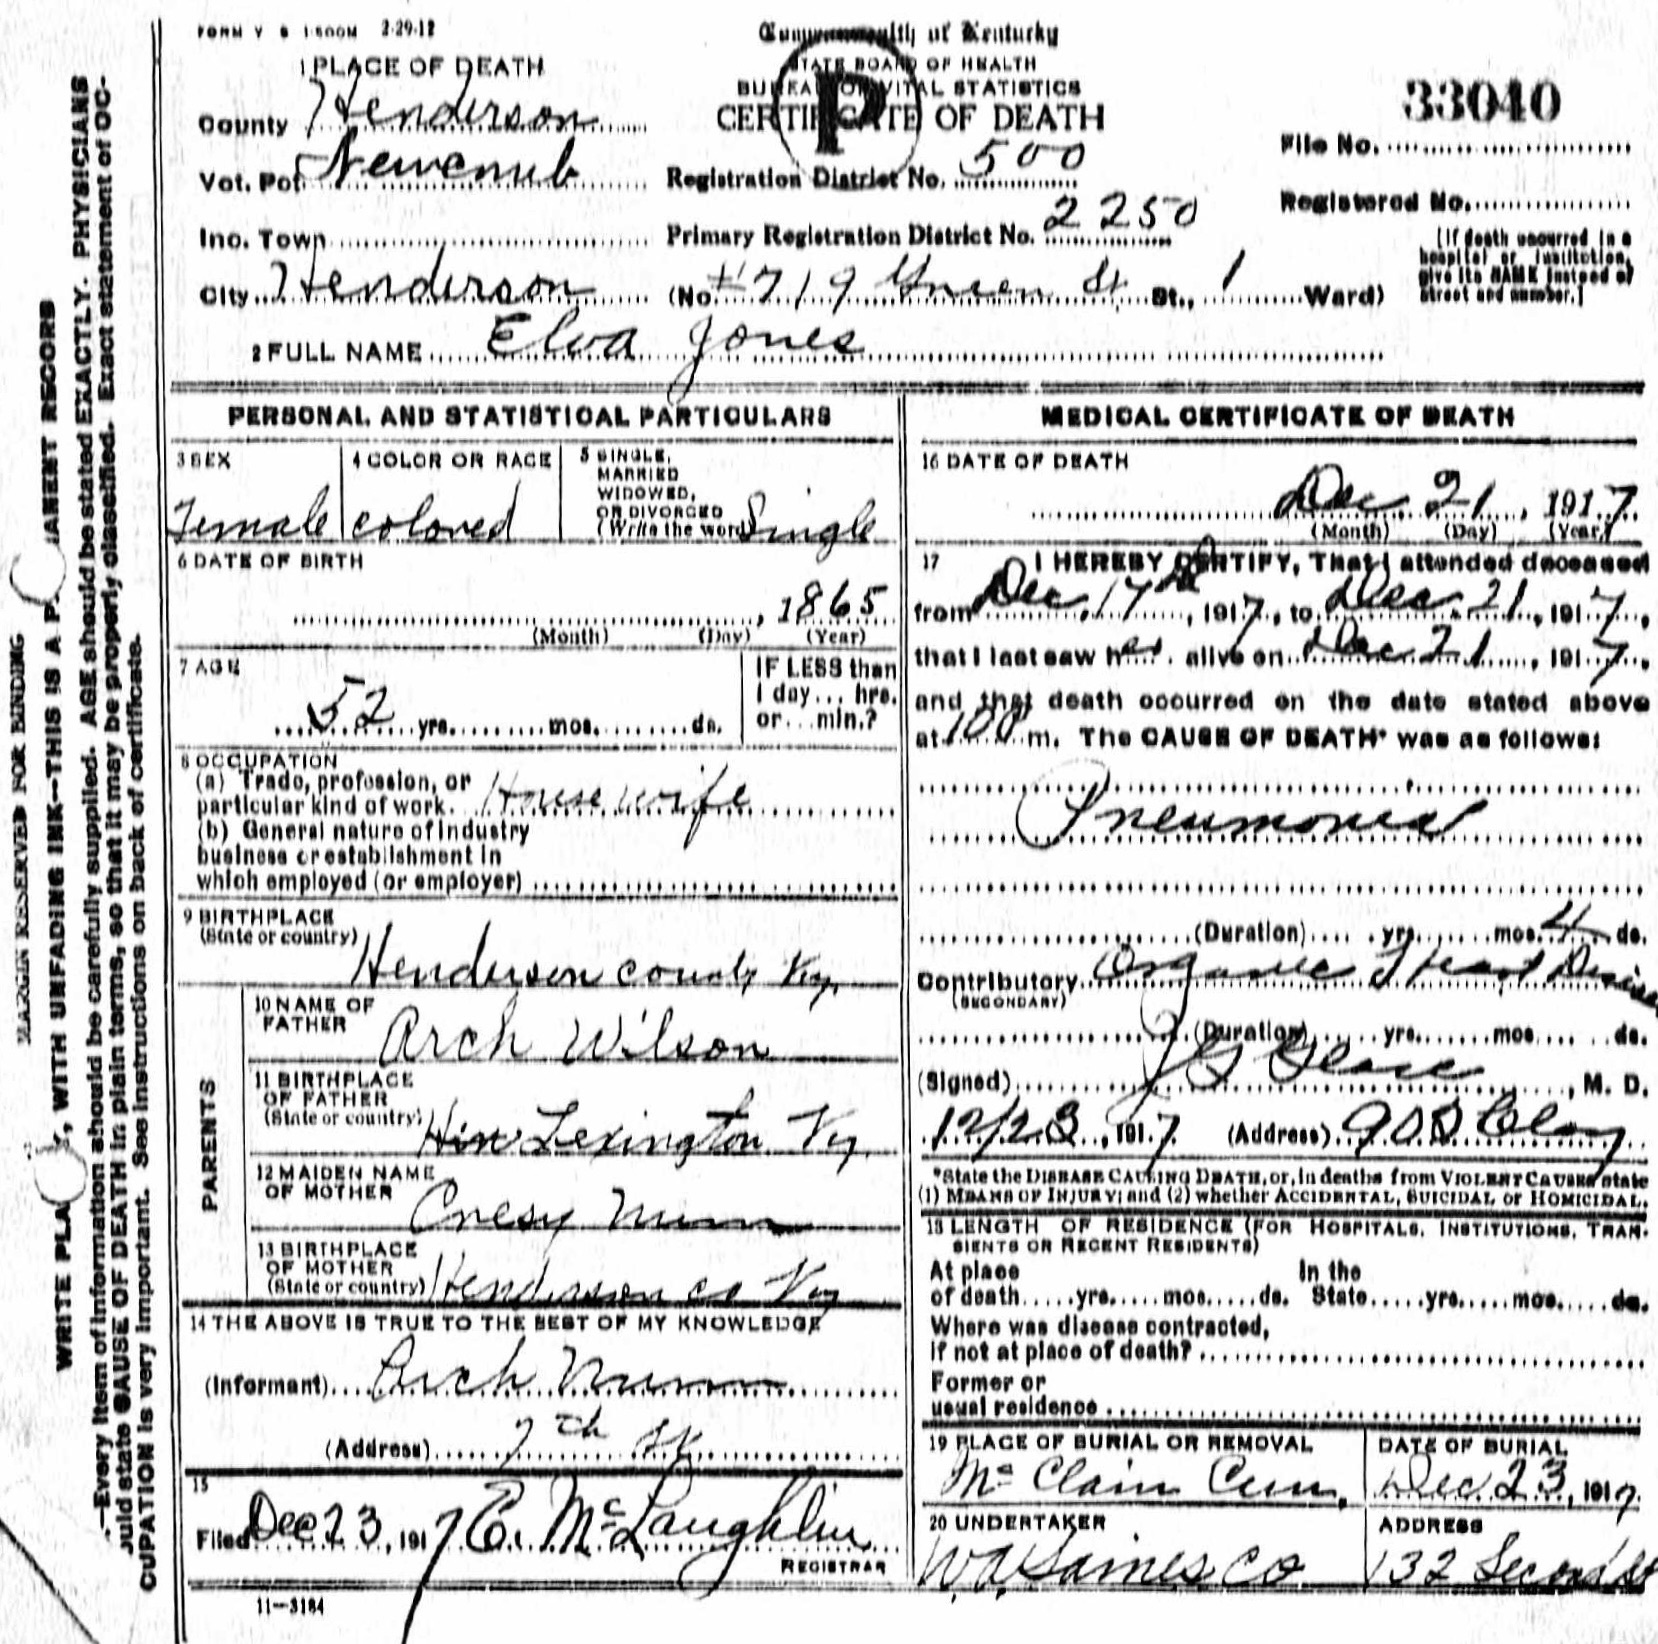 FORM V S 1-500M 2-29-12
Commonwealth of Kentucky
STATE BOARD OF HEALTH
BUREAU OF VITAL STATISTICS
CERTIFICATE OF DEATH
P
33040
File No.
Registered No.
(If death occurred in a hospital or institution, give its NAME instead of street and number.)
1 PLACE OF DEATH
County Henderson
Vot. Pct. Newcomb
Registration District No. 500
Inc. Town
Primary Registration District No. 2250
City Henderson (No. # 719 Green St. St., 1 Ward)
2 FULL NAME Elva Jones
PERSONAL AND STATISTICAL PARTICULARS
3 SEX
Female
4 COLOR OR RACE
colored
5 SINGLE, MARRIED WIDOWED, OR DIVORCED
(Write the word) Single
6 DATE OF BIRTH
, 1865
(Month) (Day) (Year)
7 AGE
52 yrs. mos. ds.
IF LESS than
1 day... hrs.
or... min.?
8 OCCUPATION
(a) Trade, profession, or
particular kind of work. Housewife
(b) General nature of industry
business or establishment in
which employed (or employer)
9 BIRTHPLACE
(State or country) Henderson county Ky.
PARENTS
10 NAME OF FATHER Arch Wilson
11 BIRTHPLACE OF FATHER
(State or country) Lexington Ky.
12 MAIDEN NAME OF MOTHER Cresy Nunn
13 BIRTHPLACE OF MOTHER
(State or country) Henderson co Ky
14 THE ABOVE IS TRUE TO THE BEST OF MY KNOWLEDGE
(Informant) Arch Nunn
(Address) 7th St.
15
Filed Dec 23, 1917 E. McLaughlin
REGISTRAR
11-3184
MEDICAL CERTIFICATE OF DEATH
16 DATE OF DEATH
Dec 21, 1917
(Month) (Day) (Year)
17 I HEREBY CERTIFY, That I attended deceased
from Dec. 17th, 1917, to Dec. 21, 1917,
that I last saw her alive on Dec 21, 1917,
and that death occurred on the date stated above
at 100 m. The CAUSE OF DEATH* was as follows:
Pneumonia
(Duration) yrs. mos. 4 ds.
Contributory Organic Heart Disease
(SECONDARY)
(Duration) yrs. mos. ds.
(Signed) J G, M. D.
12/23, 1917 (Address) 903 Clay
*State the DISEASE CAUSING DEATH, or, in deaths from VIOLENT CAUSES state
(1) MEANS OF INJURY; and (2) whether ACCIDENTAL, SUICIDAL or HOMICIDAL.
18 LENGTH OF RESIDENCE (FOR HOSPITALS, INSTITUTIONS, TRAN-
SIENTS OR RECENT RESIDENTS)
At place of death yrs. mos. ds. In the State yrs. mos. ds.
Where was disease contracted,
If not at place of death?
Former or
usual residence
19 PLACE OF BURIAL OR REMOVAL
Mc Clain Cem.
DATE OF BURIAL
Dec 23, 1917
20 UNDERTAKER
W A Gaines Co
ADDRESS
132 Second St
MARGIN RESERVED FOR BINDING
WRITE PLA Y, WITH UNFADING INK—THIS IS A P ANENT RECORD
.—Every item of information should be carefully supplied. AGE should be stated EXACTLY. PHYSICIANS
ould state CAUSE OF DEATH in plain terms, so that it may be properly classified. Exact statement of OC-
CUPATION is very important. See instructions on back of certificate.